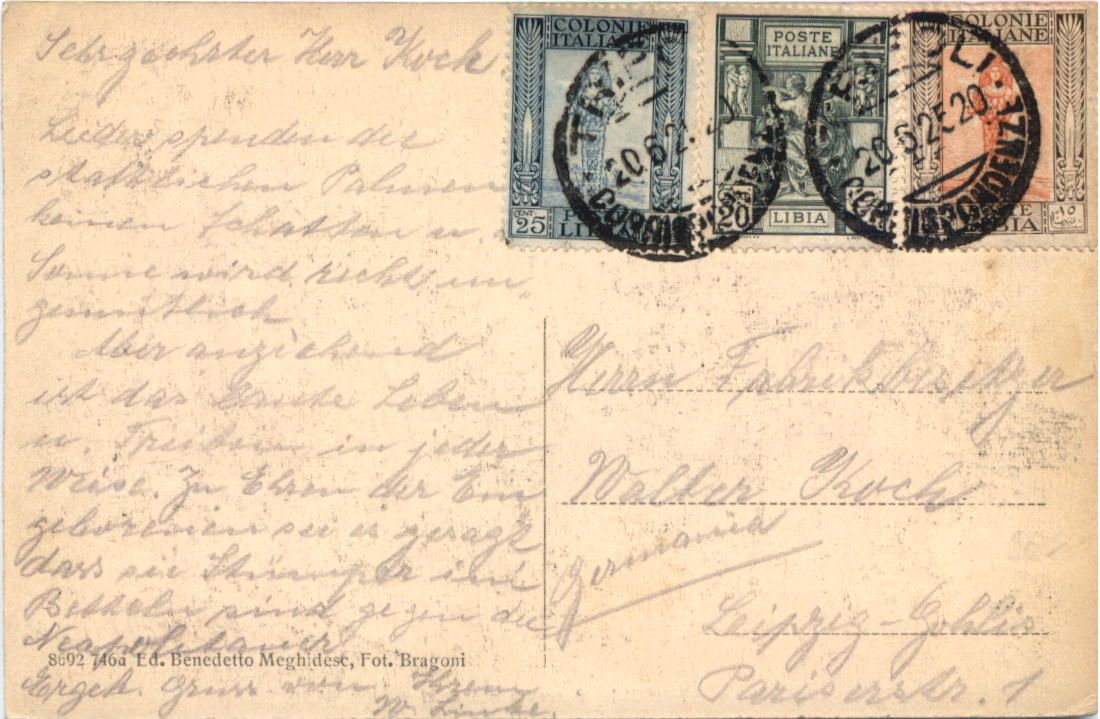 Sehrgeehrter Herr Koch.
Leider spenden der
stattlichen Palmen
keinen Schatten u.
Sonne wird recht un
gemütlich
Aber anziehend
ist das bunte Leben
u. Treiben in jeder
Weise. Zu Ehren der Ein
geborenen sei es gesagt
dass sie Stümper im
Betteln sind gegen die
Neapolitaner
Ergeb. Gruss von Ihrem
W. Linke.
8692 746a Ed. Benedetto Meghidesc, Fot. Bragoni
COLONIE
ITALIANE
CENT. 25
POSTE
ITALIANE
20
LIBIA
COLONIE
ITALIANE
١٥
TRIPOLI
20.6.25.20
CORRISPONDENZE
Herrn Fabrikbesitzer
Walter Koch
Germania
Leipzig-Gohlis
Pariserstr. 1